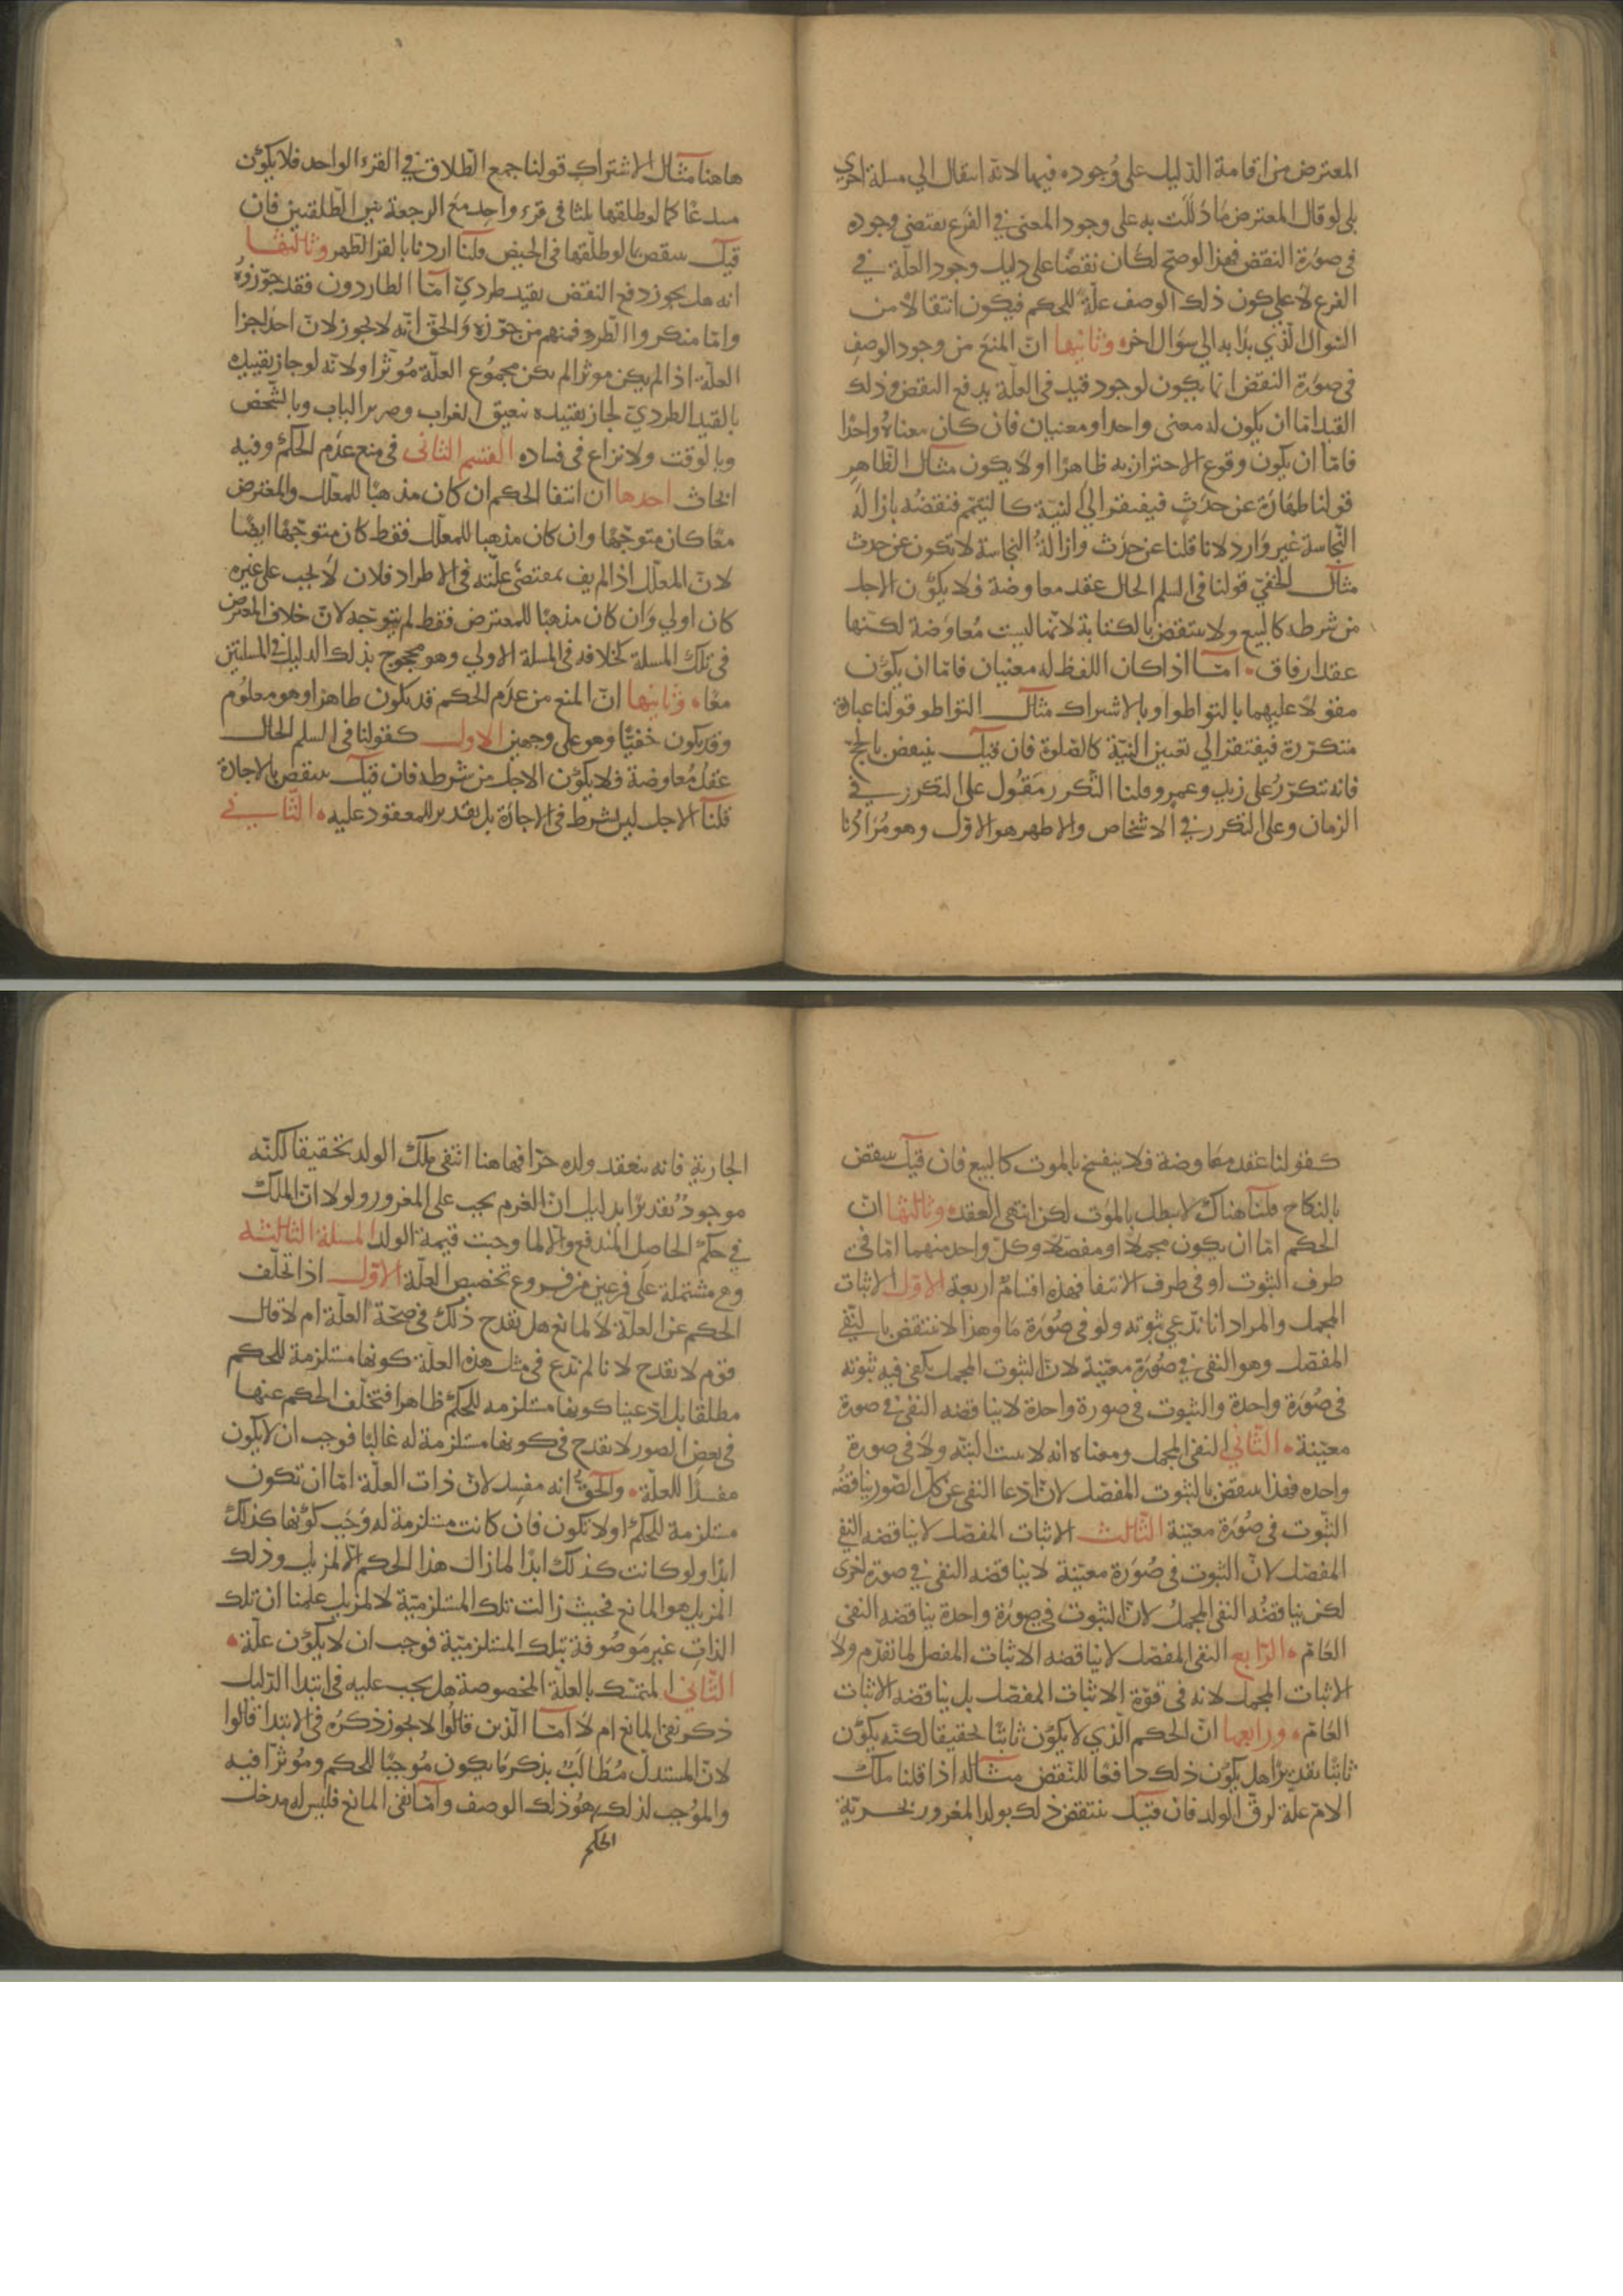 المعترض من اقامة الدليل على وُجوده فيها لانه انتقال الي مسلة اخري
بلى لو قال المعترض مَا دَللَت به على وجود المعنى في الفرع يقتضى وجوده
فى صورة النقض فهذا لو صح لكان نقضًا على دليل وجود العلّة في
الفرع لا على كون ذلك الوصف علّة للحكم فيكون انتقالا من
السوال الّذي بدا به الي سوَال اخر ه وثانيها انّ المنع من وجود الوصف
فى صورة النقض انما يكون لوجود قيد فى العلّة يدفع النقض وذلك
القيد امّا ان يكون له معنى واحد او معنيان فان كان معناهُ واحدًا
فامّا ان يكون وقوع الاحتراز به ظاهرًا او لا يكون مثال الظاهر
قولنا طهَارَة عن حدَثٍ فيفتقر الي النيّة كالتيّمم فنقضُه بازالة
النّجاسة غير وَارد لانا قلنا عن حدَث وازالةُ النجاسة لا تكون عن حدث
مثال الخفيّ قولنا فى السلم الحال عقد معاوضة فلا يكوُن الاجل
من شرطه كالبيع ولا ينتقض بالكتابة لانها ليست مُعاوَضة لكنّها
عقد ارفاق ۰ امّا اذا كان اللفظ له معنيان فامّا ان يكوُن
مقولًا عليهما بالتواطو او بالاشتراك مثال التواطو قولنا عبادة
متكرّرة فيفتقر الي تعيين النيّة كالصّلوة فان قيل ينتقض بالحجّ
فانه تتكرّرُ على زيد وعمرو قلنا التكرر مَقُول على التكرر في
الزمان وعلى التكرر في الاشخاص والاظهر هو الاوّل وهو مُرَادُنا
هاهنا مثال الاشتراك قولنا جمع الطّلاق في القرء الواحد فلا يكوُن
مبدعًا كما لو طلقها ثلثا فى قرء واحِد مَع الرجعة بين الطّلقتين فان
قيل ينتقض بما لو طلّقها فى الحيض قلنا اردنا بالقرء الطّهر وثالثها
انه هل يجوز دفع النقض بقيد طرديّ امّا الطاردون فقد جوّزوهُ
وامّا منكروا الطّرد فمنهم من جوّزه وَالحقّ انّه لا يجوز لانّ احد اجزا
العلّة اذا لم يكن موثرا لم يكن مجموُع العلّة مُوثرًا ولانّه لو جاز تقييده
بالقيد الطرديّ لجاز تقييده بنعيق الغراب وصرير الباب وبالشخص
وبالوقت ولا نزاع فى فساده القسم الثانى فى منع عدَم الحكم وفيه
ابحاث احدها ان انتفا الحكم ان كان مذهبًا للمعلّل والمعترض
معًا كان متوجّهًا وان كان مذهبا للمعلّل فقط كان متوجّهًا ايضًا
لانّ المعلّل اذا لم يف بمقتضَى علّته فى الاطراد فلان لا يجب على غيره
كان اولي وَان كان مذهبًا للمعترض فقط لم يتوجّه لانّ خلاف المعترض
فى تلك المسلة كخلافه فى المسلة الاولي وهو مجوج بذلك الدليل فى المسلتين
معًا ه وثانيها انّ المنع من عدَم الحكم قد يكون ظاهرًا وهو معلوُم
وقد يكون خفيًّا وهو على وجهين الاول كقولنا فى السلم الحال
عقدُ مُعاوضة فلا يكوُن الاجل من شرطه فان قيل ينتقض بالاجارة
قلنا الاجل ليس شرط فى الاجارة بل تقدير للمعقود عليه ه الثاني
كقولنا عقد معَاوضة فلا ينفسخ بالموت كالبيع فان قيل ينتقض
بالنكاح قلنا هناك لا يبطل بالموُت لكن انتهى العقد ه وثالثها انّ
الحكم امّا ان يكون مجملا او مفصّلا وكلّ واحد منهما امّا فى
طرف الثبوت او فى طرف الانتفا فهذه اقسامٌ اربعة الاوّل الاثبات
المجمل والمراد انا ندّعي ثبوته ولو فى صُورَة مَا وهذا لا ينتقض بالنّفي
المفصّل وهو النفى في صُورَة معيّنة لانّ الثبوت المجمل يكفى فيه ثبوته
فى صُورَة واحدة والثبوت فى صورة واحدة لا يناقضه النفى في صورة
معيّنة ۰ الثّاني النفى المجمل ومعناه انه لا يثبت البتّه ولا فى صورة
واحده فهذا ينتقض بالثبوت المفصّل لانّ ادّعا النفى عن كلّ الصّور يناقضُه
الثّبوت فى صُورَة معيّنة الثّالث الاثبات المفصّل لا يناقضه النفي
المفصّل لانّ الثبوت فى صُورَة معيّنة لا يناقضه النفى في صورة اخرى
لكن يناقضُه النفى المجملُ لانّ الثبوت فى صورَة واحدة يناقضه النفى
العَامّ ه الرّابع النفى المفصّل لا يناقضه الاثبات المفصل لما تقدّم ولا
الاثبات المجمل لانه فى قوّة الاثبات المفصّل بل يناقضه الاثبات
العَامّ ه ورابعها انّ الحكم الّذي لا يكوُن ثابتًا تحقيقا لكنّه يكوُن
ثابتًا تقديرًا هل يكوُن ذلك دافعًا للنّقض مثاله اذا قلنا ملك
الامّ علّة لرقّ الولد فان قيل ينتقض ذلك بولد المغرور بحريّة
الجارية فانه ينعقد ولده حرّا فهاهنا انتفى ملك الولد تحقيقا لكنّه
موجودٌ تقديرًا بدليل انّ الغرم يجب على المغرور ولولا انّ الملك
في حكم الحاصِل المندفع والّا لما وجبت قيمة الولد المسلة الثالثه
وهى مشتملة على فرعين من فروع تخصيص العلّة الاوّل اذا تخلّف
الحكم عن العلّة لا لمانع هل يقدح ذلك فى صحّة العلّة ام لا قال
قوم لا يقدح لانا لم ندّع فى مثل هذه العلّة كونها مستلزمة للحكم
مطلقا بل ادّعينا كونها مستلزمه للحكم ظاهرا فتخلّف الحكم عنها
فى بعض الصور لا يقدح فى كونها مستلزمة له غالبًا فوجب ان لا يكون
مفسدًا للعلّة ۰ والحقّ انه مفسِد لانّ ذات العلّة امّا ان تكون
مستلزمة للحكم او لا تكون فان كانت مستلزمة له وَجَب كوُنها كذلك
ابدًا ولو كانت كذلك ابدًا لما زال هذا الحكم الّا لمزيل وذلك
المزيل هو المانع فحيث زالت تلك المستلزميّة لا لمزيل علمنا ان تلك
الذات غير مَوصُوفة بتلك المستلزميّة فوجب ان لا يكوُن علّة ۰
الثّاني المتمسّك بالعلّة المخصوصة هل يجب عليه فى ابتدا الدّليل
ذكر نفى المانع ام لا امّا الّذين قالوُا لا يجوز ذكرُه فى الابتدا قالوا
لانّ المستدلّ مُطَالَبٌ بذكر مَا يكون مُوجبًا للحكم ومُوثرًا فيه
والموُجب لذلك هوُ ذلك الوصف وامّا نفى المانع فليس له مدخل
الحكم